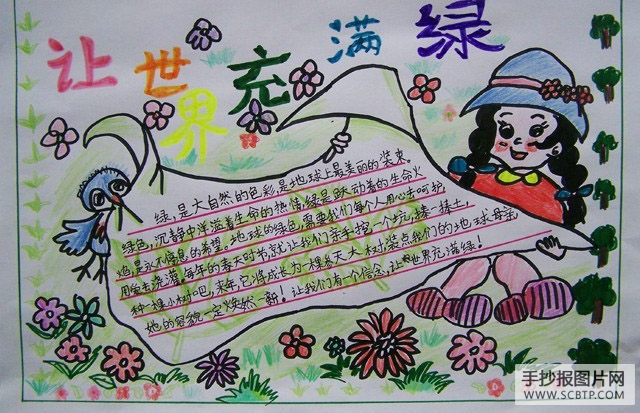 让世界充满绿
绿,是大自然的色彩,是地球上最美丽的装束。
绿色,沉静中洋溢着生命的热情,绿是跃动着的生命火
焰,是永不熄息的希望。地球的绿色,需要我们每个人用心去呵护,
用爱去浇灌。每年的春天时节,就让我们亲手挖一个坑,捧一捧土,
种一棵小树吧,来年,它将成长为一棵参天大树,装点我们的地球母亲,
她的容貌一定焕然一新!让我们有一个信念,让世界充满绿!
手抄报图片网
WWW.SCBTP.COM